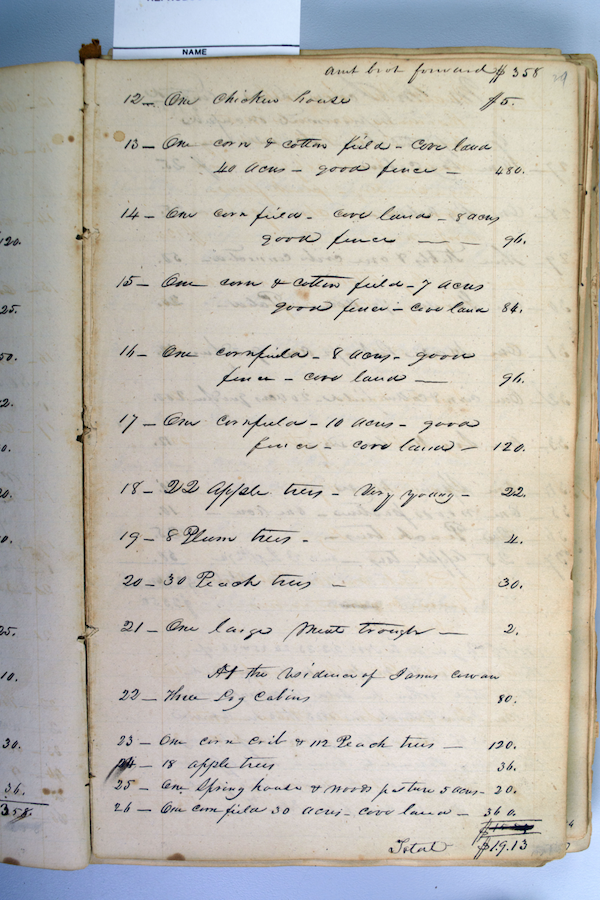 NAME
amt brot forward $358
12 — One chicken house $5.
13 — One corn & cotton field — cove land
40 acres — good fence — 480.
14 — One corn field — cove land — 8 acres
good fence — — 96.
15 — One corn & cotton field — 7 acres
good fence — cove land 84.
16 — One cornfield — 8 acres — good
fence — cove land — 96.
17 — One cornfield — 10 acres — good
fence — cove land — 120.
18 — 22 Apple trees — Very young — 22.
19 — 8 Plum trees — 4.
20 — 30 Peach trees — 30.
21 — One large Meat trough — 2.
At the residence of James Cowan
22 — Three Log Cabins 80.
23 — One corn crib & 112 Peach trees — 120.
24 — 18 apple trees 36.
25 — One Spring house & woods pasture 5 acres — 20.
26 — One corn field 30 acres — cove land — 360.
Total $19.13
120.
25.
50.
2.
0.
20.
0.
25.
10.
30.
36.
358.